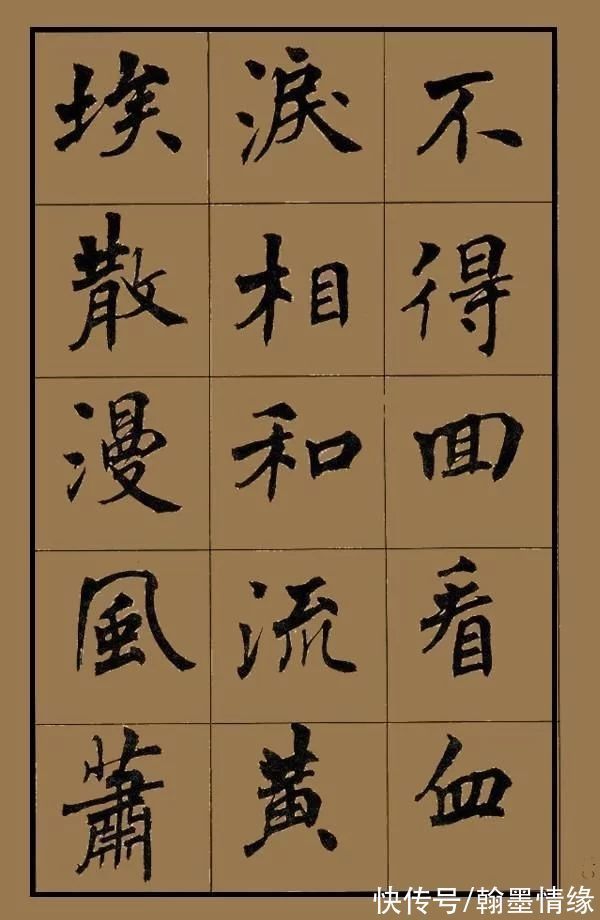 不得回看血
淚相和流黃
埃散漫風蕭
二〇
快传号/翰墨情缘